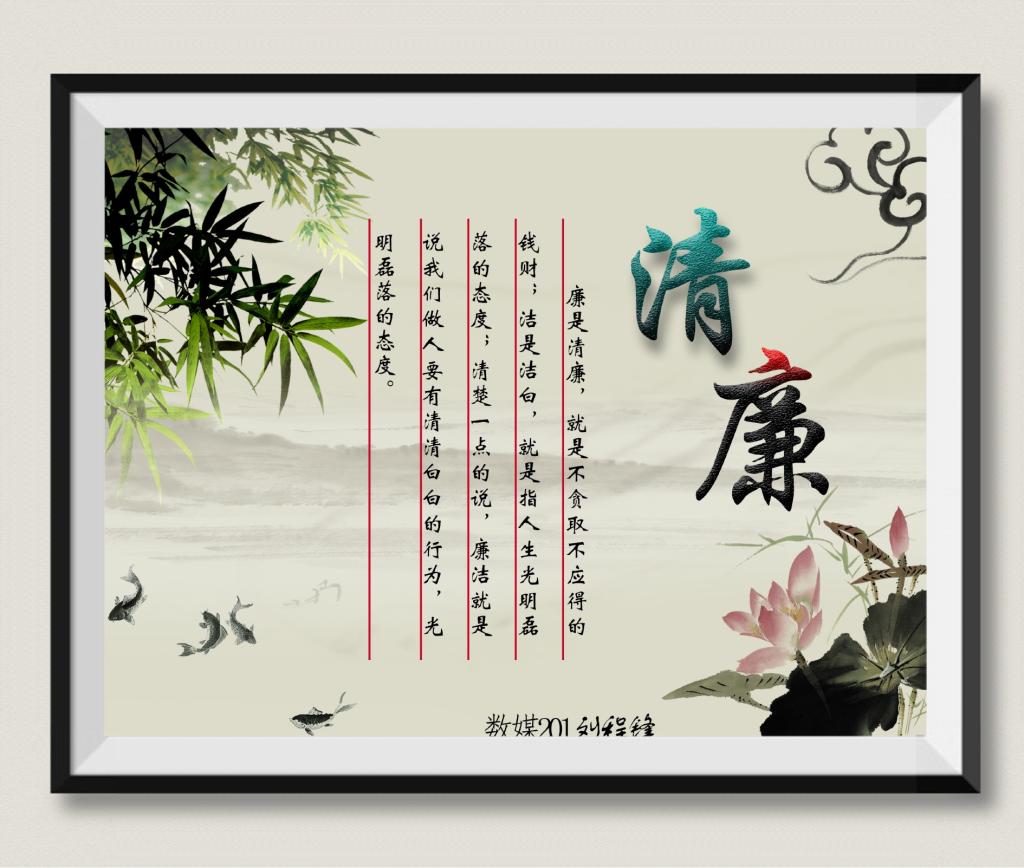 清
廉
廉是清廉，就是不贪取不应得的
钱财；洁是洁白，就是指人生光明磊
落的态度；清楚一点的说，廉洁就是
说我们做人要有清清白白的行为，光
明磊落的态度。
数媒201 刘程锋